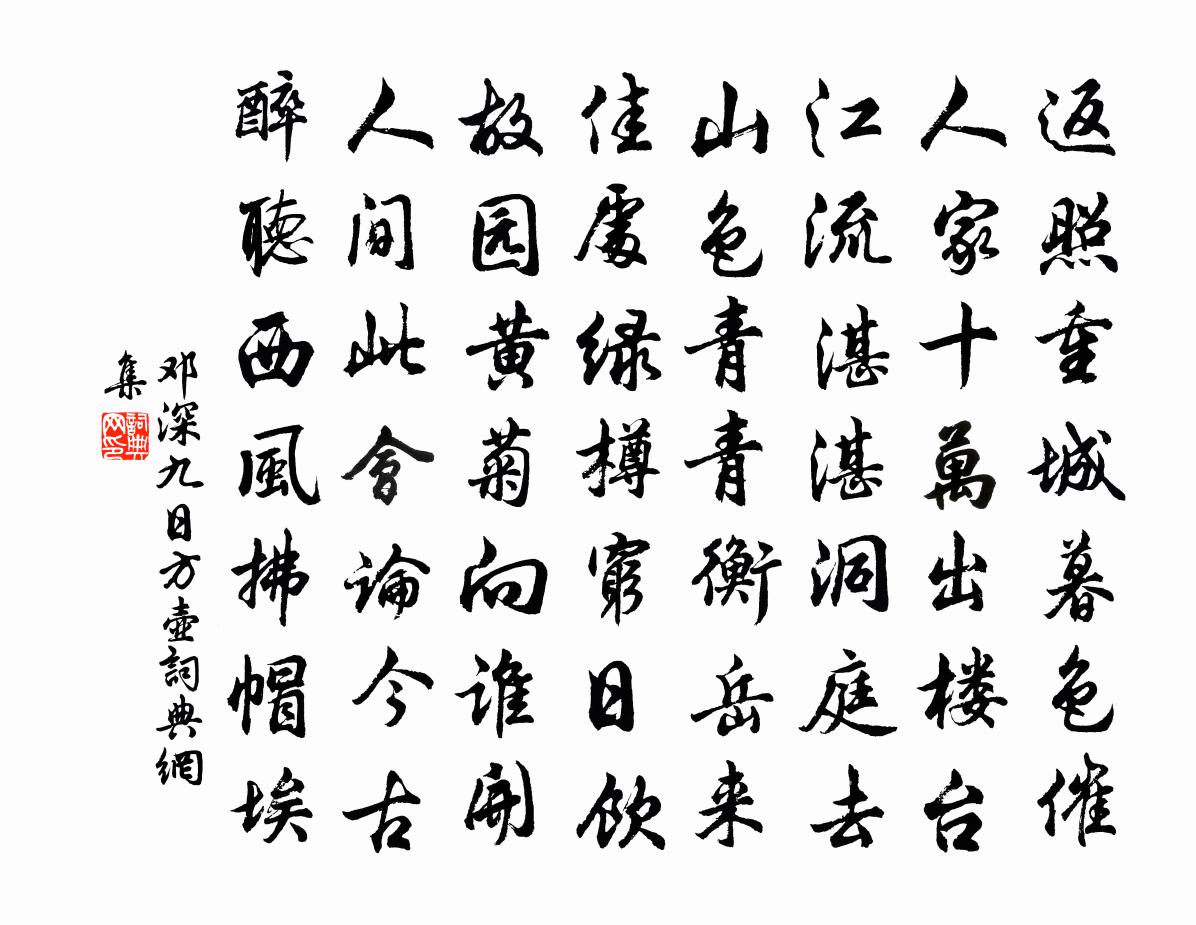 返照重城暮色催
人家十萬出楼台
江流湛湛洞庭去
山色青青衡岳来
佳處绿樽窮日飲
故园黄菊向誰開
人間此會論今古
醉聽西風拂帽埃
邓深九日方壺詞典網
集
詞典
网印